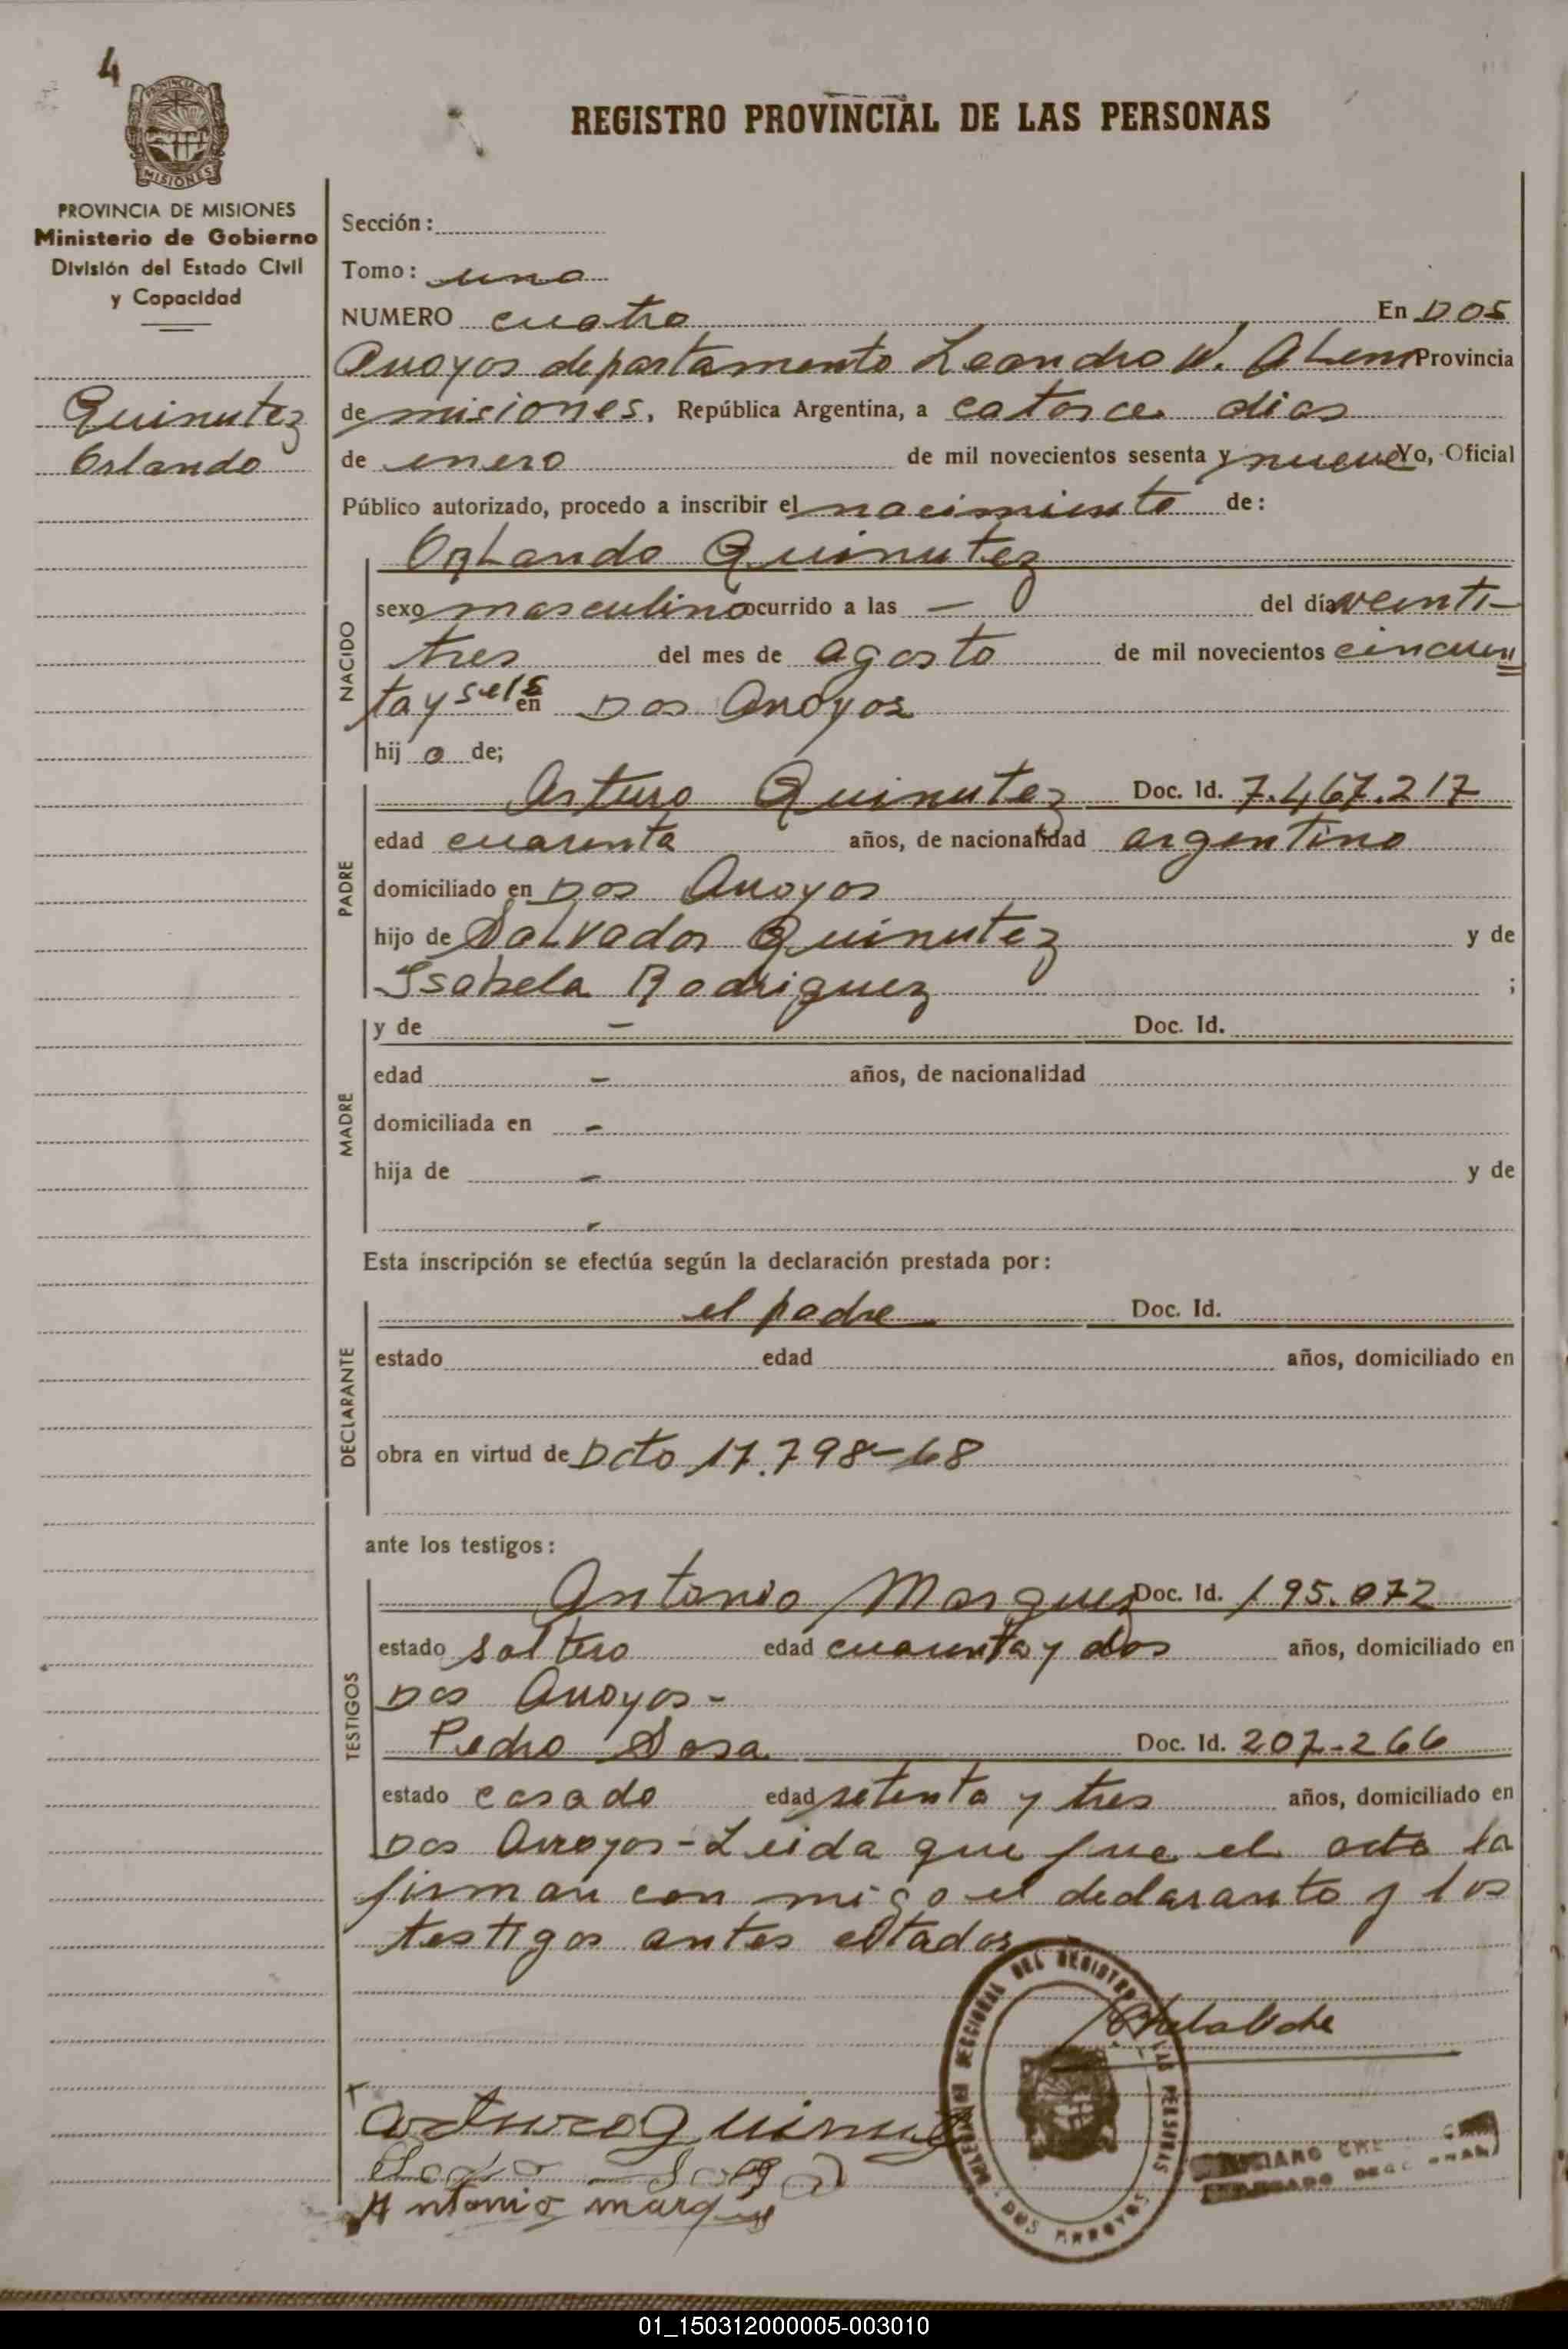 4
PROVINCIA DE
MISIONES
REGISTRO PROVINCIAL DE LAS PERSONAS
PROVINCIA DE MISIONES
Ministerio de Gobierno
División del Estado Civil
y Capacidad
Quinutez
Orlando
Sección:
Tomo: uno
NUMERO cuatro En Dos
Arroyos departamento Leandro N. Alem Provincia
de misiones, República Argentina, a catorce dias
de enero de mil novecientos sesenta y nueve Yo, Oficial
Público autorizado, procedo a inscribir el nacimiento de:
Orlando Quinutez
NACIDO
sexo masculino ocurrido a las — del día veinti-
tres del mes de agosto de mil novecientos cincuen
ta y seis en Dos Arroyos
hij o de;
PADRE
Arturo Quinutez Doc. Id. 7.467.217
edad cuarenta años, de nacionalidad argentino
domiciliado en Dos Arroyos
hijo de Salvador Quinutez y de
Isabela Rodriguez ;
MADRE
y de — Doc. Id.
edad - años, de nacionalidad
domiciliada en -
hija de - y de
-
Esta inscripción se efectúa según la declaración prestada por:
DECLARANTE
el padre Doc. Id.
estado edad años, domiciliado en
obra en virtud de Dcto 17.798-68
ante los testigos:
TESTIGOS
Antonio Marquez Doc. Id. 195.072
estado soltero edad cuarenta y dos años, domiciliado en
Dos Arroyos-
Pedro Sosa Doc. Id. 207-266
estado casado edad setenta y tres años, domiciliado en
Dos Arroyos - Leida que fue el acta la
firman con migo el declarante y los
testigos antes citados
SECCIONAL DEL REGISTRO
LAS PERSONAS
DOS ARROYOS
Antonio marques
01_150312000005-003010